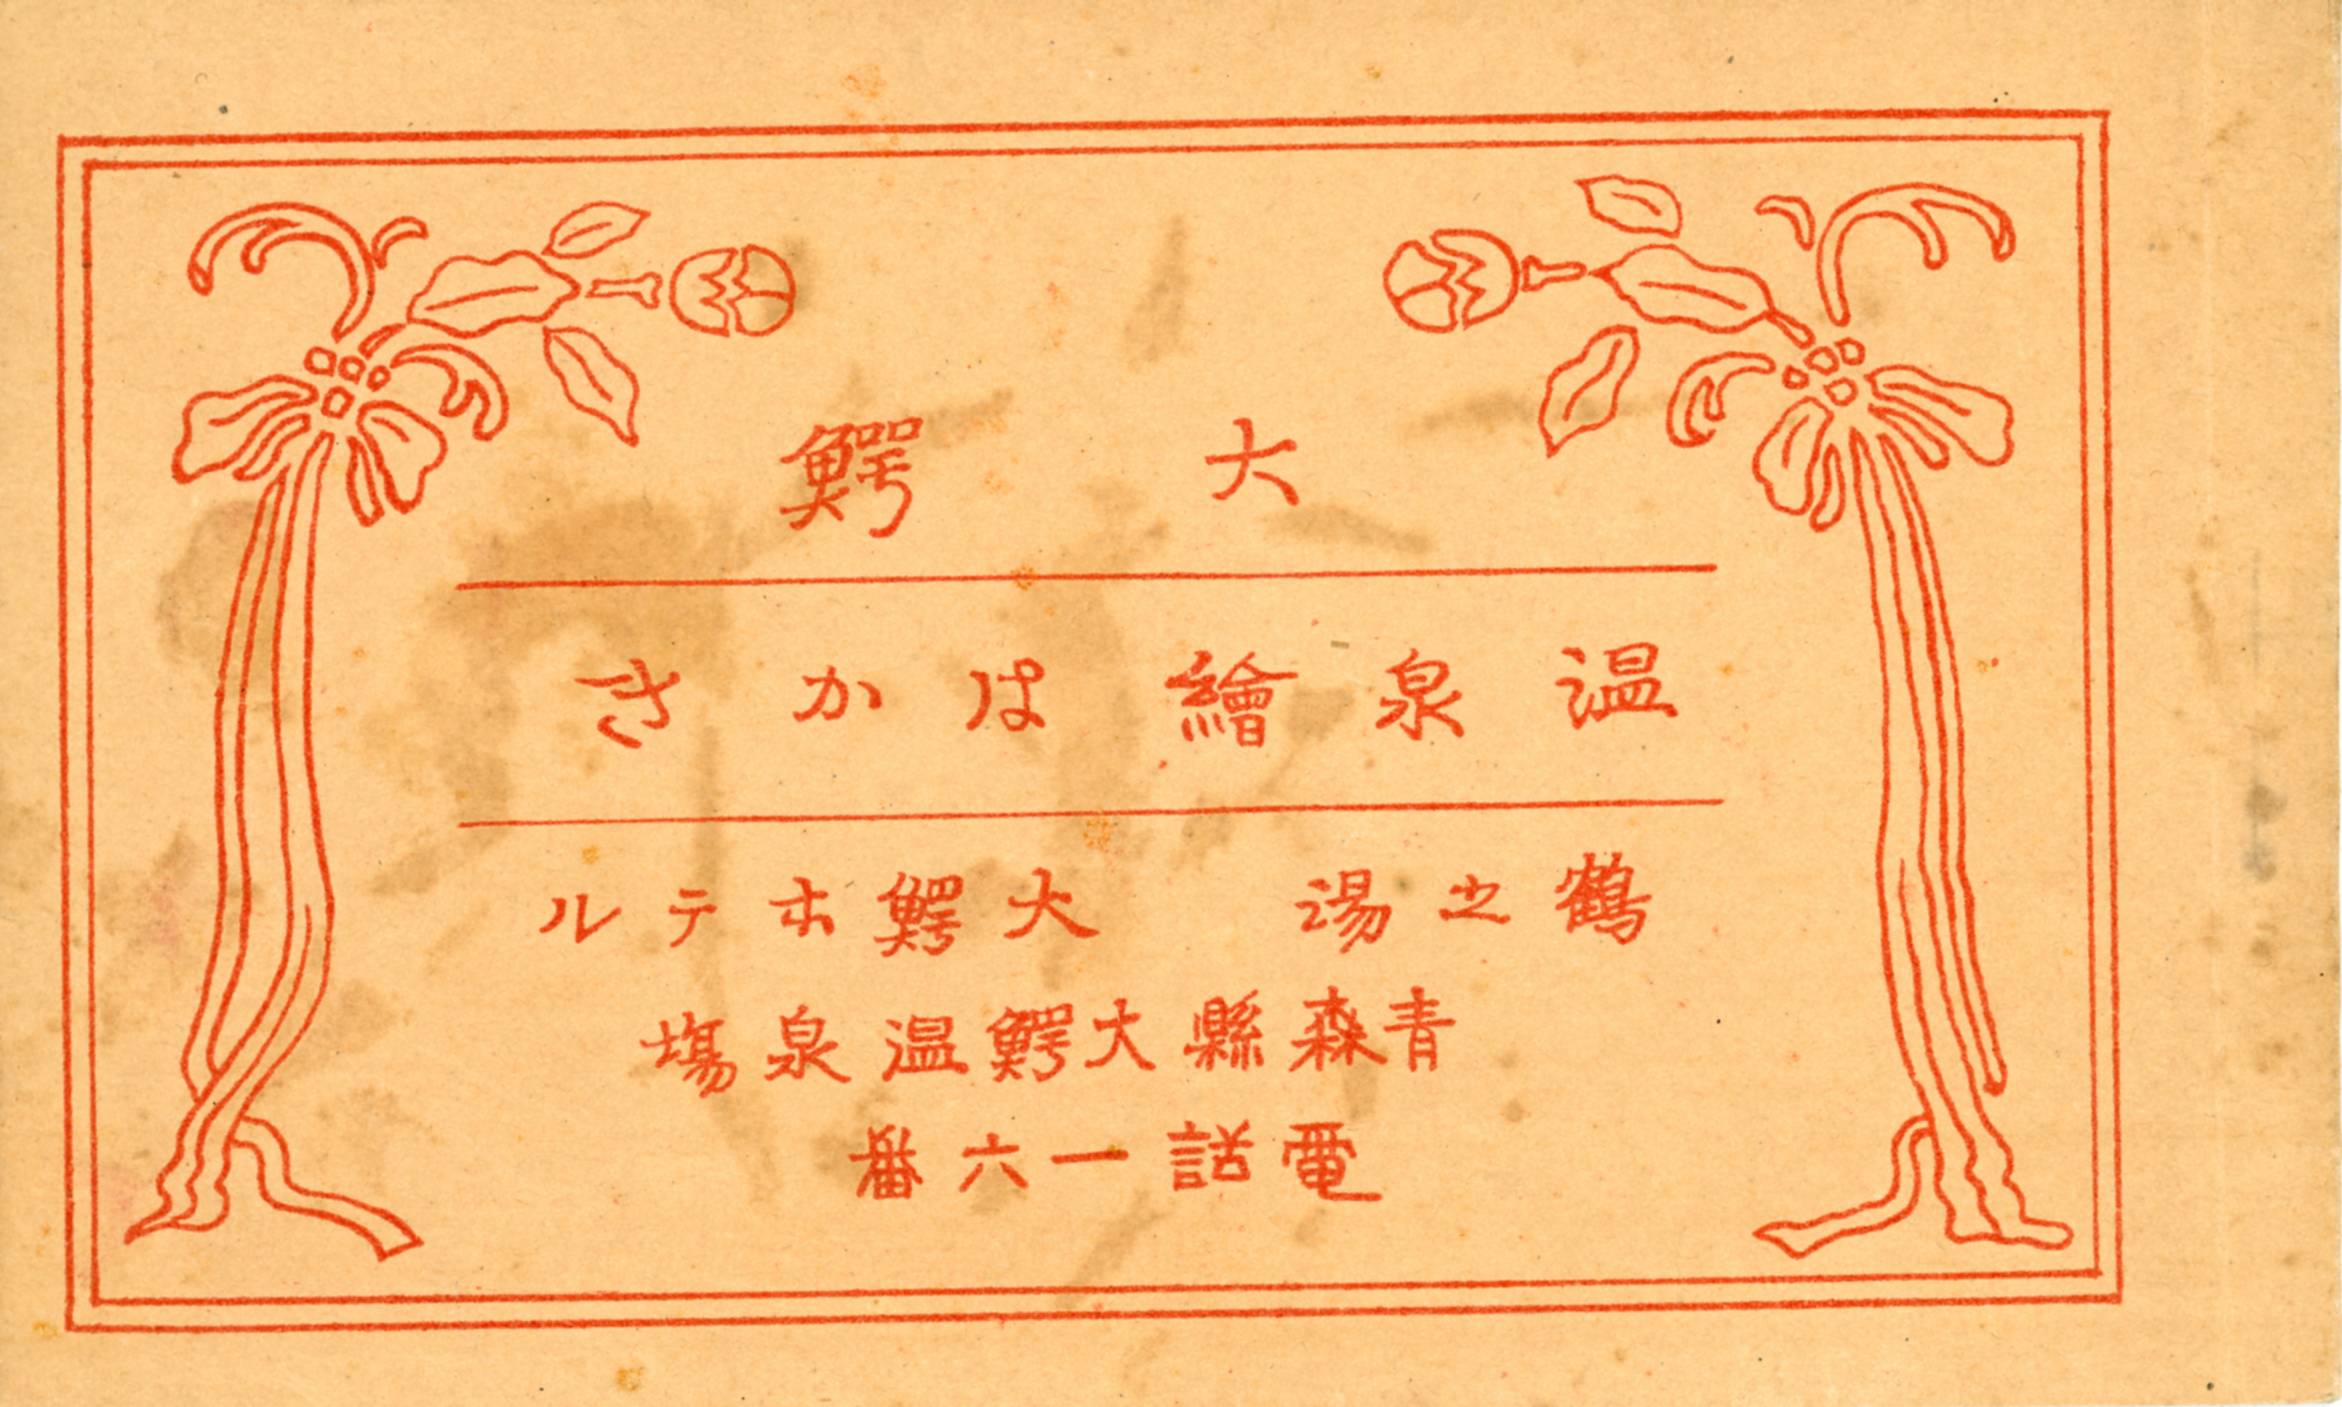 大鰐
温泉繪はかき
鶴之湯 大鰐ホテル
青森縣大鰐温泉塲
電話一六番